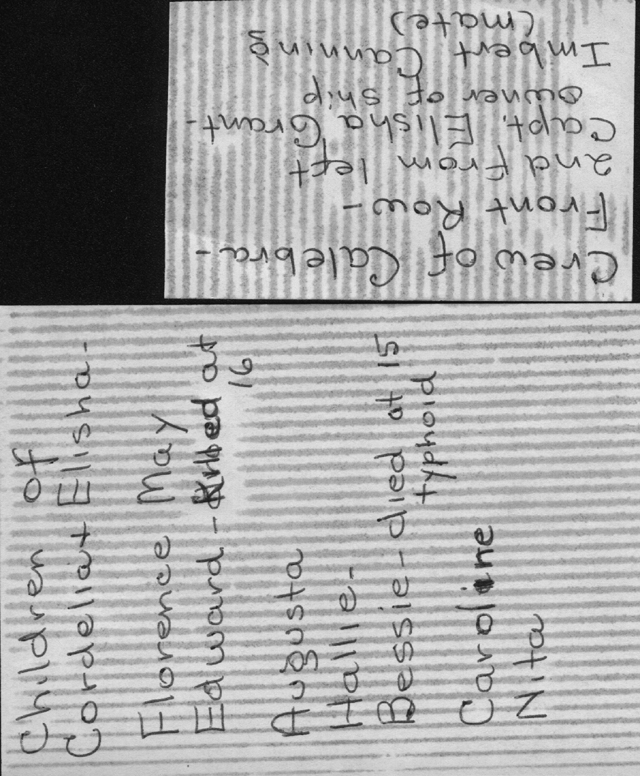 Crew of Calebra-
Front Row-
2nd from left
Capt. Elisha Grant-
owner of ship
Imbert Canning
(mate)
Children of
Cordelia + Elisha-
Florence May
Edward - Killed at
16
Augusta
Hallie-
Bessie - died at 15
typhoid
Caroline
Nita